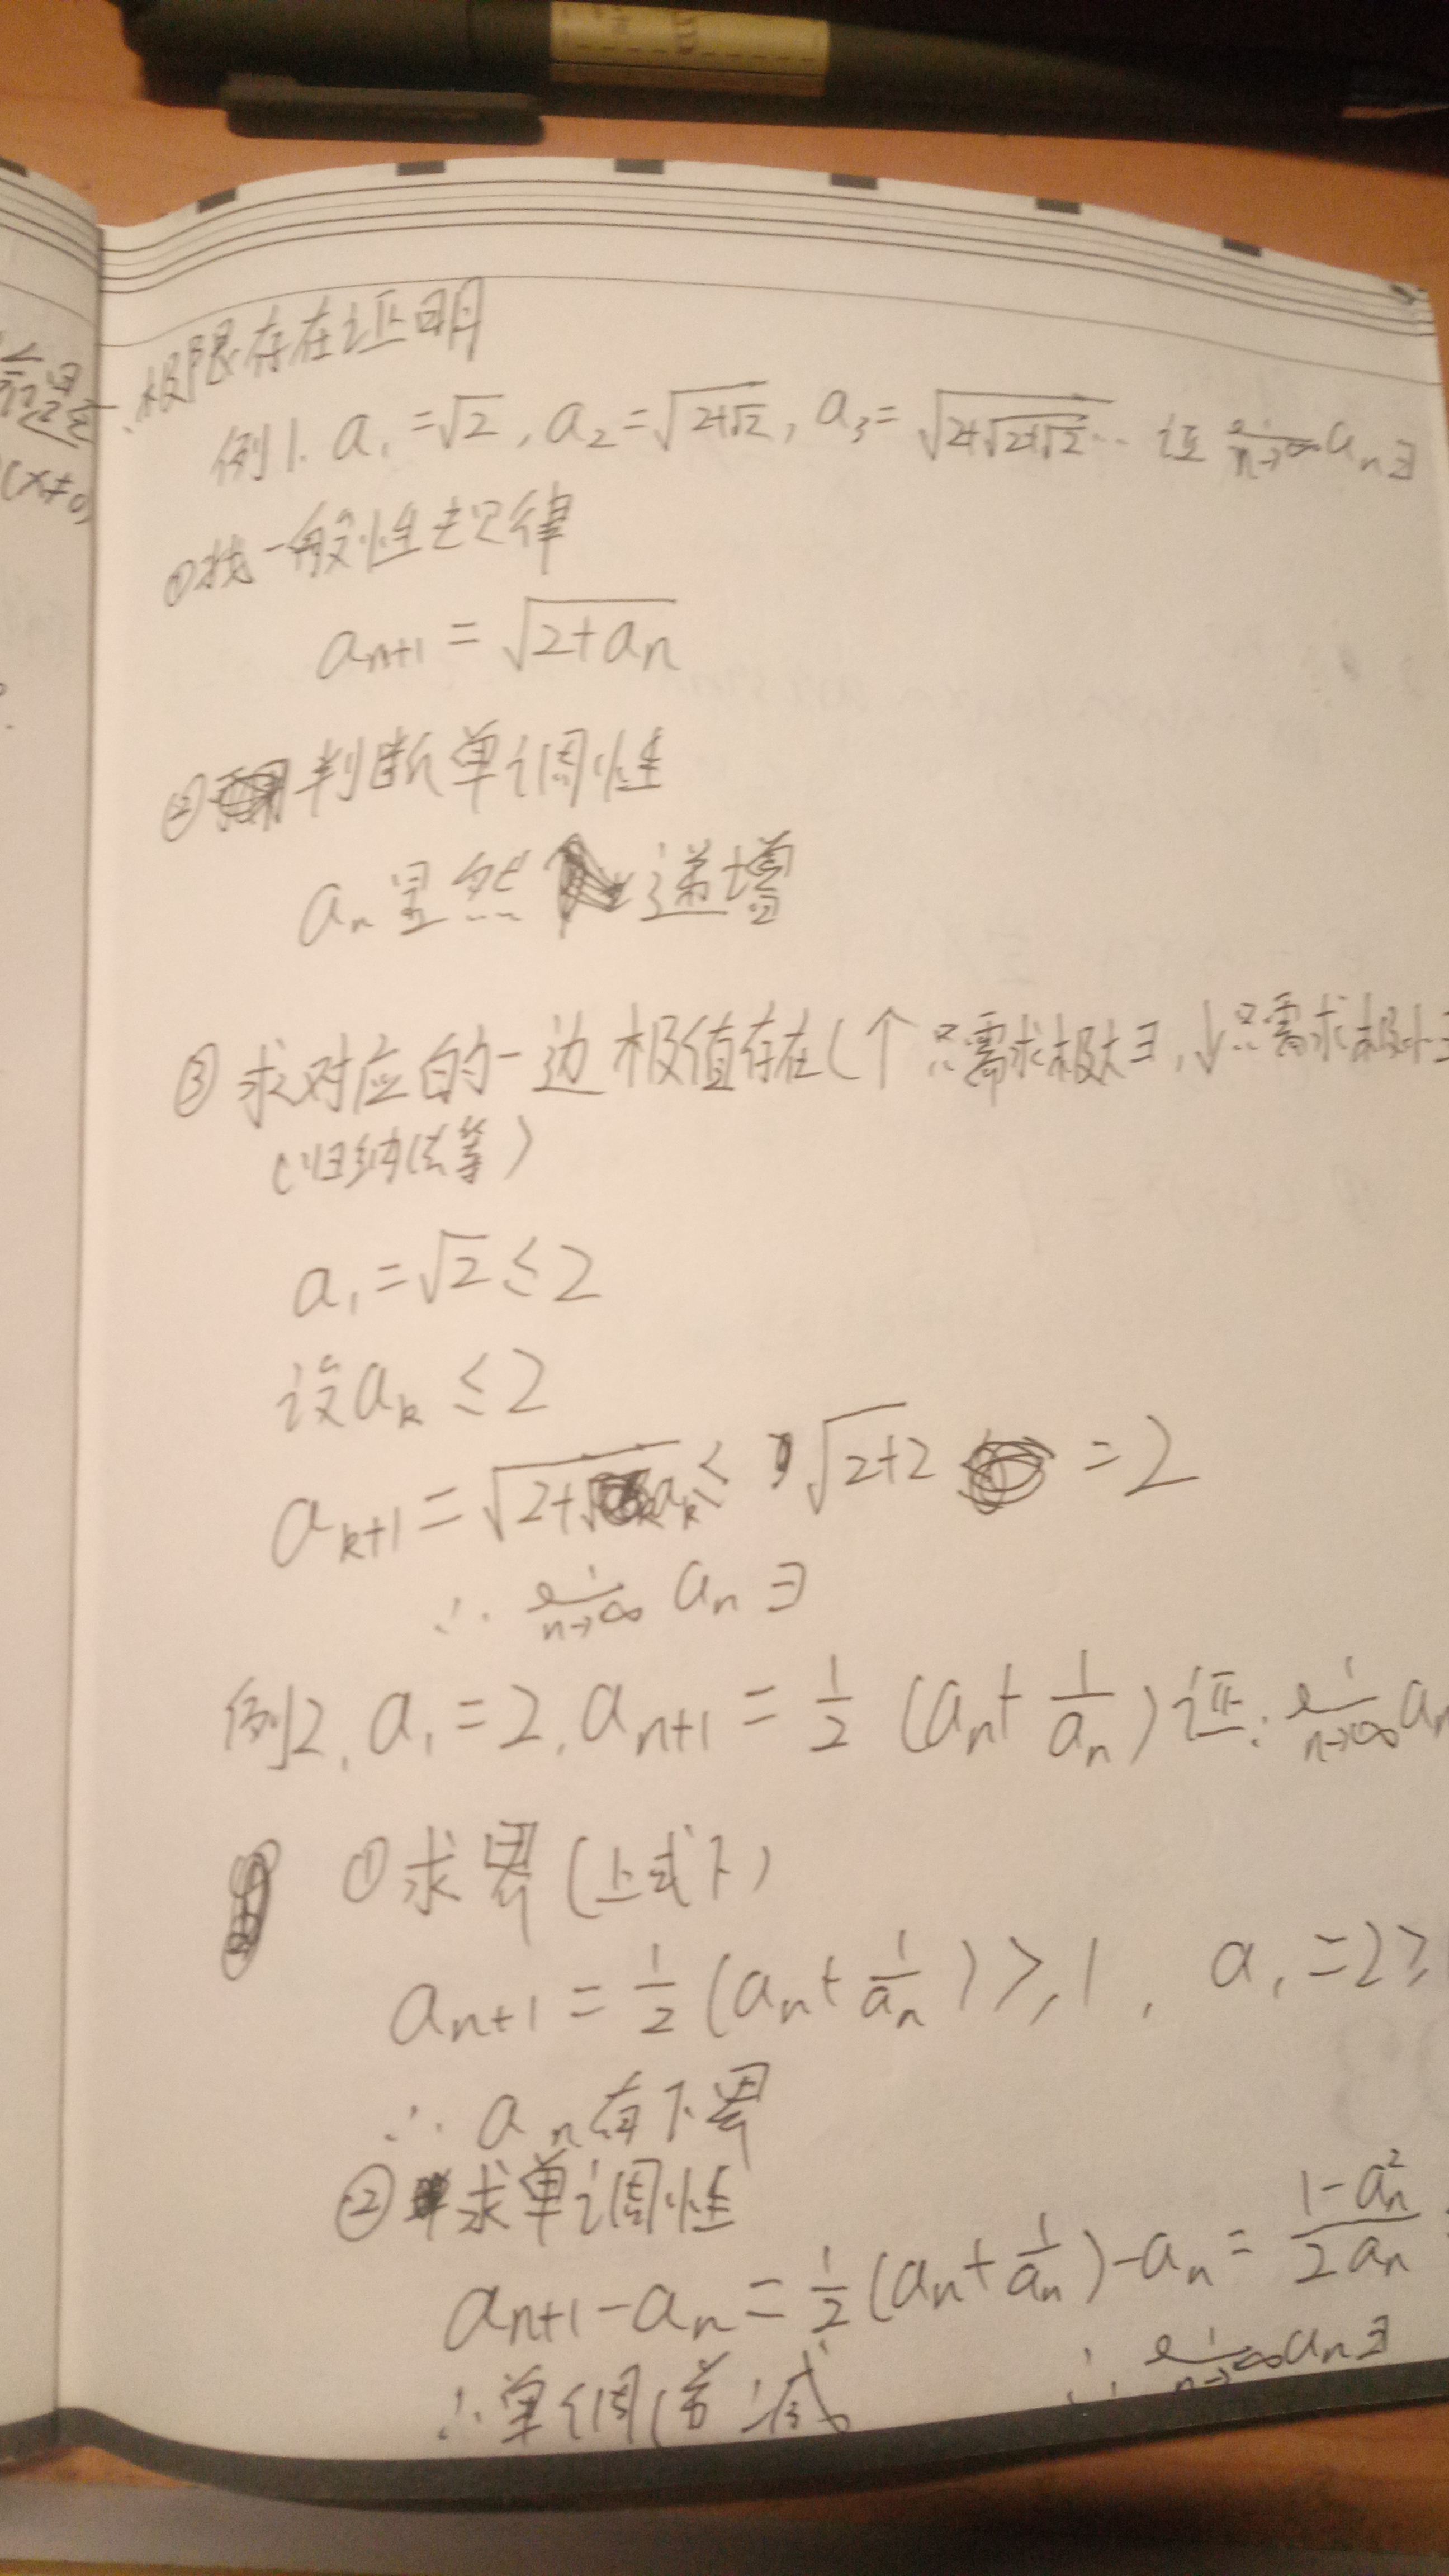 极限存在证明
例1. a₁=√2, a₂=√(2+√2), a₃=√(2+√(2+√2))… 证 lim n→∞ aₙ∃
①找一般性规律
aₙ₊₁ = √(2+aₙ)
②判断单调性
aₙ显然 递增
③求对应的一边极值存在(↑只需求极大∃,↓只需求极小∃
(归纳法等)
a₁=√2≤2
设aₖ≤2
aₖ₊₁=√(2+aₖ)≤√(2+2) =2
∴ lim n→∞ aₙ∃
例2. a₁=2, aₙ₊₁=1/2(aₙ+1/aₙ)证: lim n→∞ aₙ
①求界(上或下)
aₙ₊₁=1/2(aₙ+1/aₙ)≥1, a₁=2≥
∴ aₙ有下界
②求单调性
aₙ₊₁-aₙ=1/2(aₙ+1/aₙ)-aₙ=(1-aₙ²)/(2aₙ)
∴单调递减 ∴ lim n→∞ aₙ∃
(x≠0)